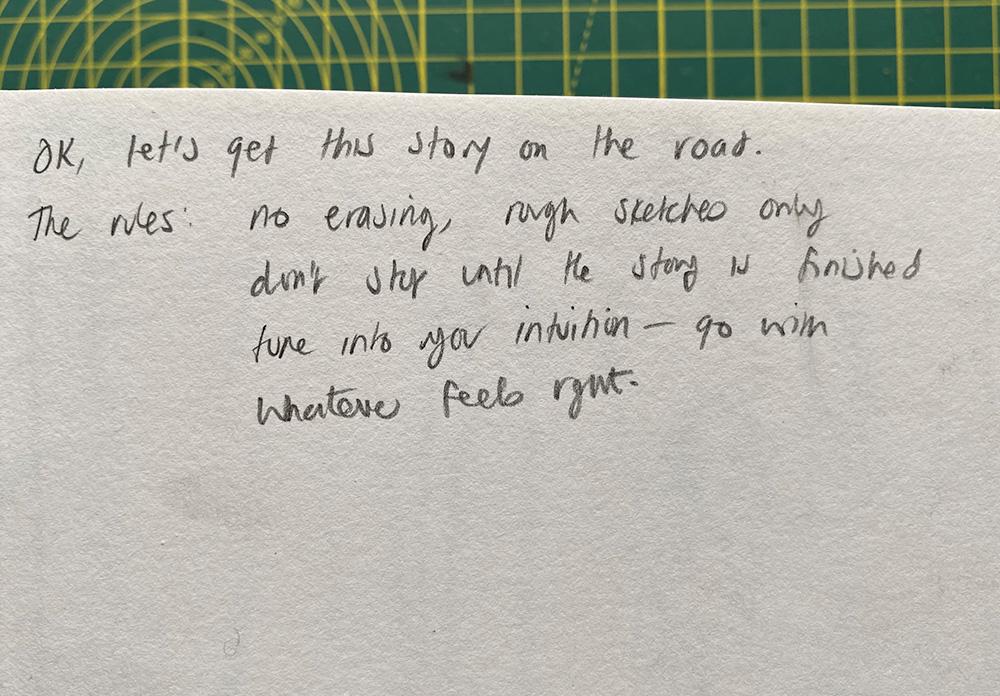 OK, let's get this story on the road.
The rules: no erasing, rough sketches only
don't stop until the story is finished
tune into your intuition – go with
whatever feels right.